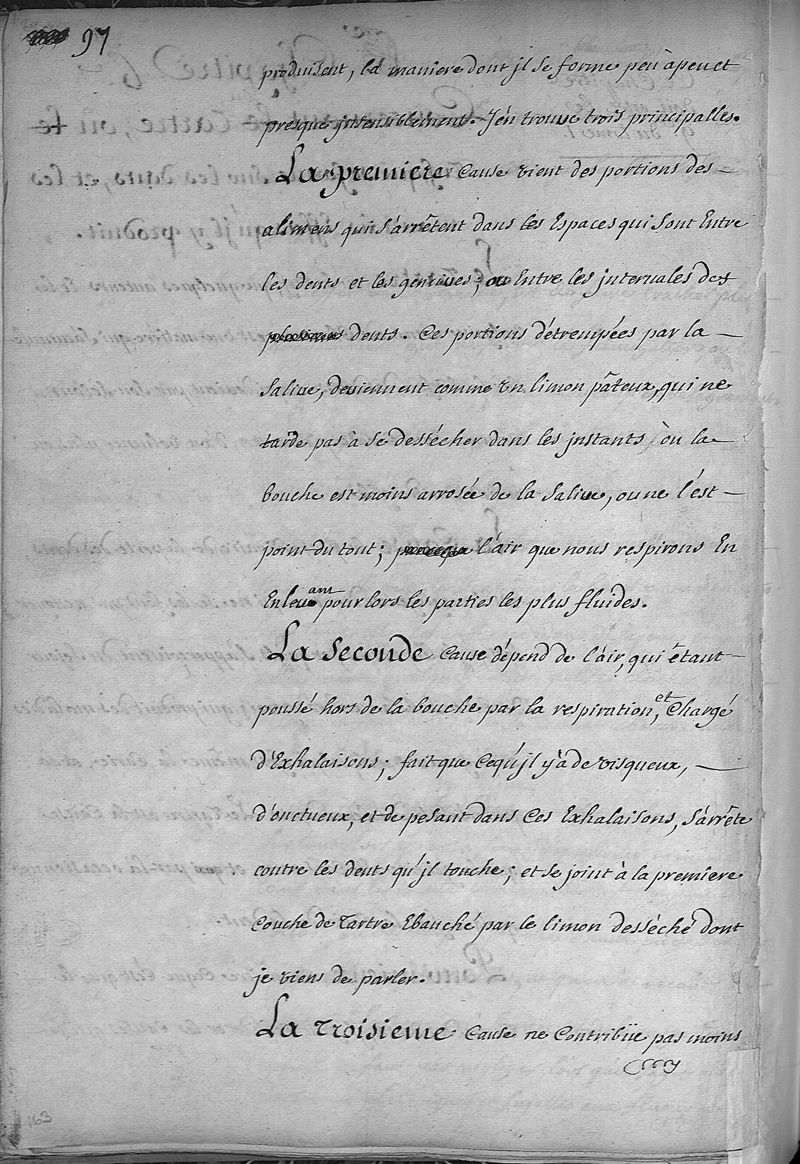 97
produisent, la maniere dont jl se forme peu à peu et
presque jnsensiblement. J'en trouve trois principalles.
La premiere Cause vient des portions des
alimens qui s'arrêtent dans les Espaces qui sont Entre
les dents et les gencives; ou Entre les jntervales des
dents. Ces portions détrempées par la
Salive, deviennent comme un limon pâteux, qui ne
tarde pas à se dessécher dans les jnstants, où la
bouche est moins arrosée de la Salive, ou ne l'est
point du tout; l'air que nous respirons En
Enlevant pour lors les parties les plus fluides.
La Seconde Cause dépend de l'air, qui êtant
poussé hors de la bouche par la respiration, et Chargé
d'Exhalaisons; fait que Ce qu'jl y a de visqueux,
d'onctueux, et de pesant dans Ces Exhalaisons, s'arrête
contre les dents qu'jl touche; et se joint à la premiere
Couche de Tartre Ebauché par le limon desséché dont
je viens de parler.
La Troisieme Cause ne Contribüe pas moins
163